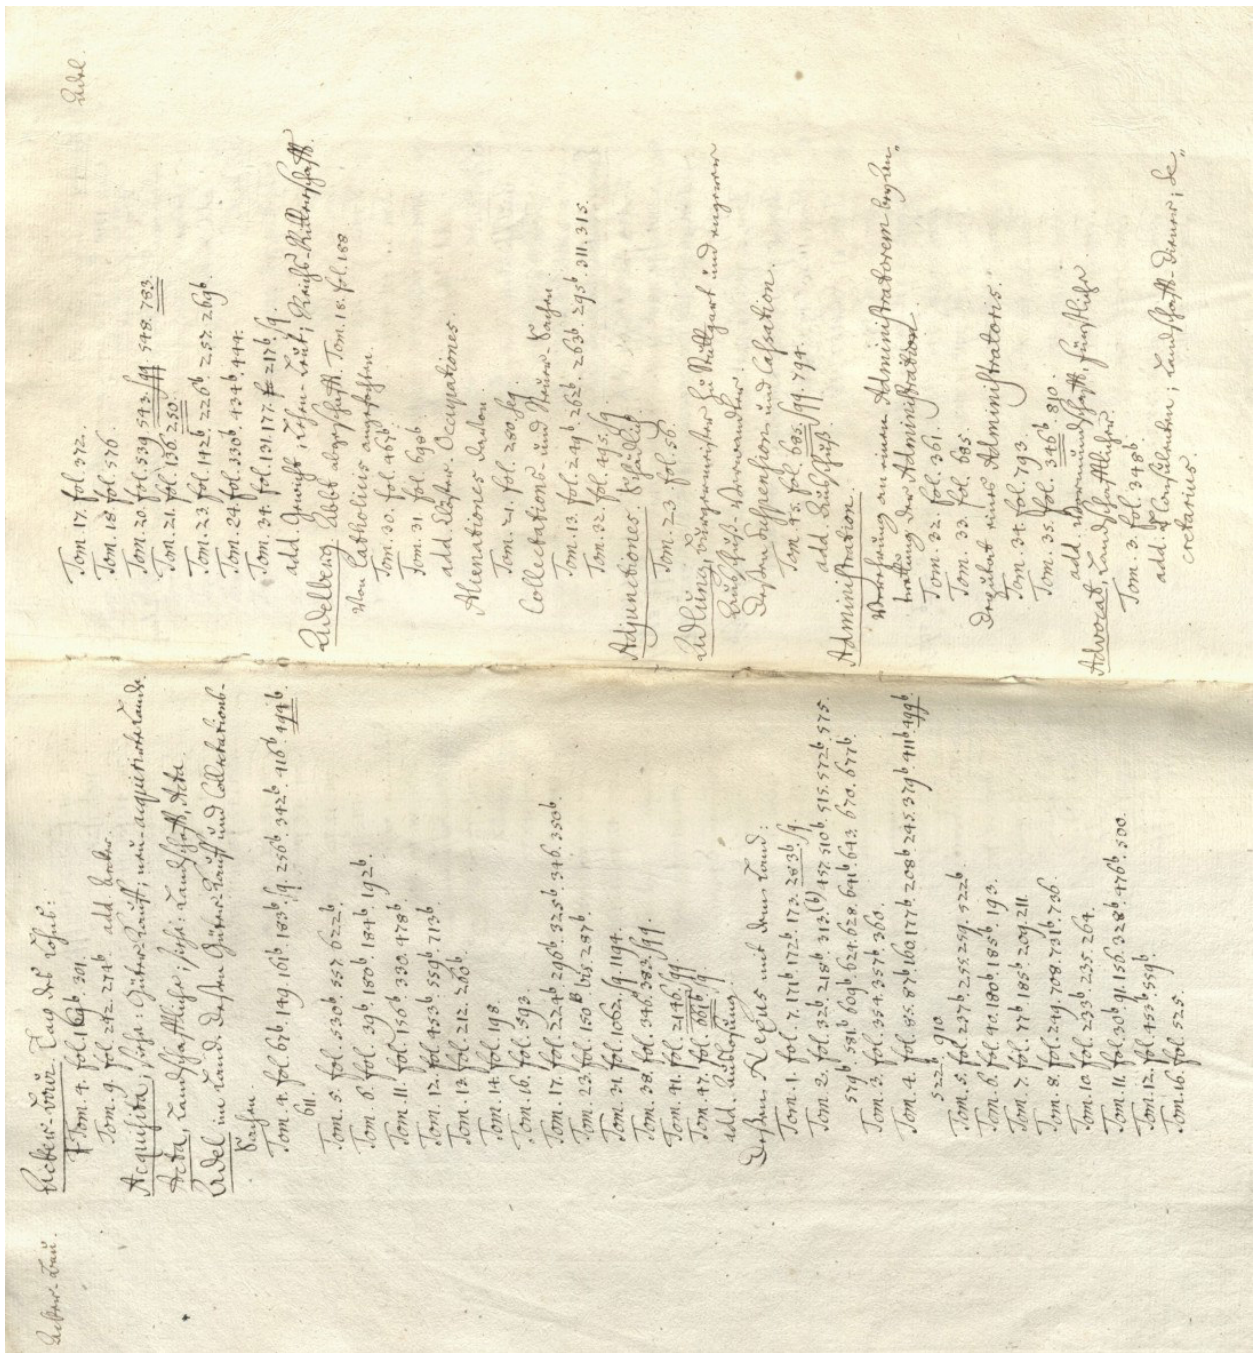 Acker-Bau.
Äcker-Bau. Tag des Lohns:
Tom. 4. fol. 169b. 301.
Tom. 9. fol. 242. 274b. add.
Acquisita, siehe: Güter-Kauff; neu-acquirirte Lande.
Acta, Landschafftliche; siehe: Landschafft, Acta
Adel im Land. Dessen Güter-Kauff und Collectations-
Sachen
Tom. 4. fol. 61b. 149. 161b. 183b. sq. 256b. 342b. 416b. 494b.
611.
Tom. 5. fol. 530b. 557. 622b.
Tom. 6. fol. 39b. 180b. 184b. 192b.
Tom. 11. fol. 156b. 330. 478b
Tom. 12. fol. 453b. 559b. 713b.
Tom. 13. fol. 212. 260b.
Tom. 14. fol. 198
Tom. 16. fol. 593.
Tom. 17. fol. 224b. 296b. 325b. 346. 350b.
Tom. 23. fol. 150b bis 287b.
Tom. 31. fol. 1062. sq. 1194.
Tom. 38. fol. 346. 383. sqq
Tom. 41. fol. 2146. sqq.
Tom. 47. fol. 661b. sq
add. Auslosung.
Dessen Nexus mit dem Land:
Tom. 1. fol. 7. 171b. 172b. 173. 283b. sq.
Tom. 2. fol. 32b. 218b. 313.(b) 457. 510b. 515. 572b. 575.
579b. 581b. 609b. 624. 628. 641b. 643. 670. 677b.
Tom. 3. fol. 354. 357b. 360.
Tom. 4. fol. 85. 87b. 160. 177b. 208b. 245. 379b. 411b. 499b.
522b. 910
Tom. 5. fol. 237b. 255. 259. 522b
Tom. 6. fol. 40. 180b. 185b. 193.
Tom. 7. fol. 77b. 185b. 209. 211.
Tom. 8. fol. 249. 708. 731b. 736.
Tom. 10. fol. 233b. 235. 264.
Tom. 11. fol. 30b. 91. 156. 328b. 476b. 500.
Tom. 12. fol. 453b. 559b.
Tom. 16. fol. 525.
Adel
Tom. 17. fol. 372.
Tom. 18. fol. 576.
Tom. 20. fol. 539. 543. sqq 548. 783.
Tom. 21. fol. 136. 250.
Tom. 23. fol. 142b. 226b. 257. 269b
Tom. 24. fol. 330b. 434b. 444.
Tom. 34. fol. 131. 177. 217b. sq.
add. Gericht; Lehen-Leut; Reichs-Ritterschafft.
Adelberg. Abbt abgeschafft. Tom. 18. fol. 188
Von Catholicis angefochten.
Tom. 30. fol. 467b.
Tom. 31. fol. 698b
add. Clöster. Occupationes.
Alienationes davon
Tom. 21. fol. 280. seq
Collectations- und Steuer-Sachen.
Tom. 13. fol. 249b. 262b. 263b. 295b. 311. 315.
Tom. 32. fol. 495. sq
Adjunctiones. Schädlich
Tom. 23. fol. 56.
Adlung, Burgermeister zu Stuttgart und engerer
Ausschuß-Verwandter.
Dessen Suspension und Cassation.
Tom. 45. fol. 685. sqq. 794.
add. Ausschuß.
Administration.
Verehrung an einen Administratorem bey
der Administration
Tom. 32. fol. 361.
Tom. 33. fol. 685.
Deputat eines Administratoris.
Tom. 34. fol. 793
Tom. 35. fol. 346b. 810.
add. Vormundschafft, fürstliche.
Advocat, Landschafftlicher.
Tom. 3. fol. 348b.
add. Consulenten; Landschafft-Diener; Se„
cretarius.